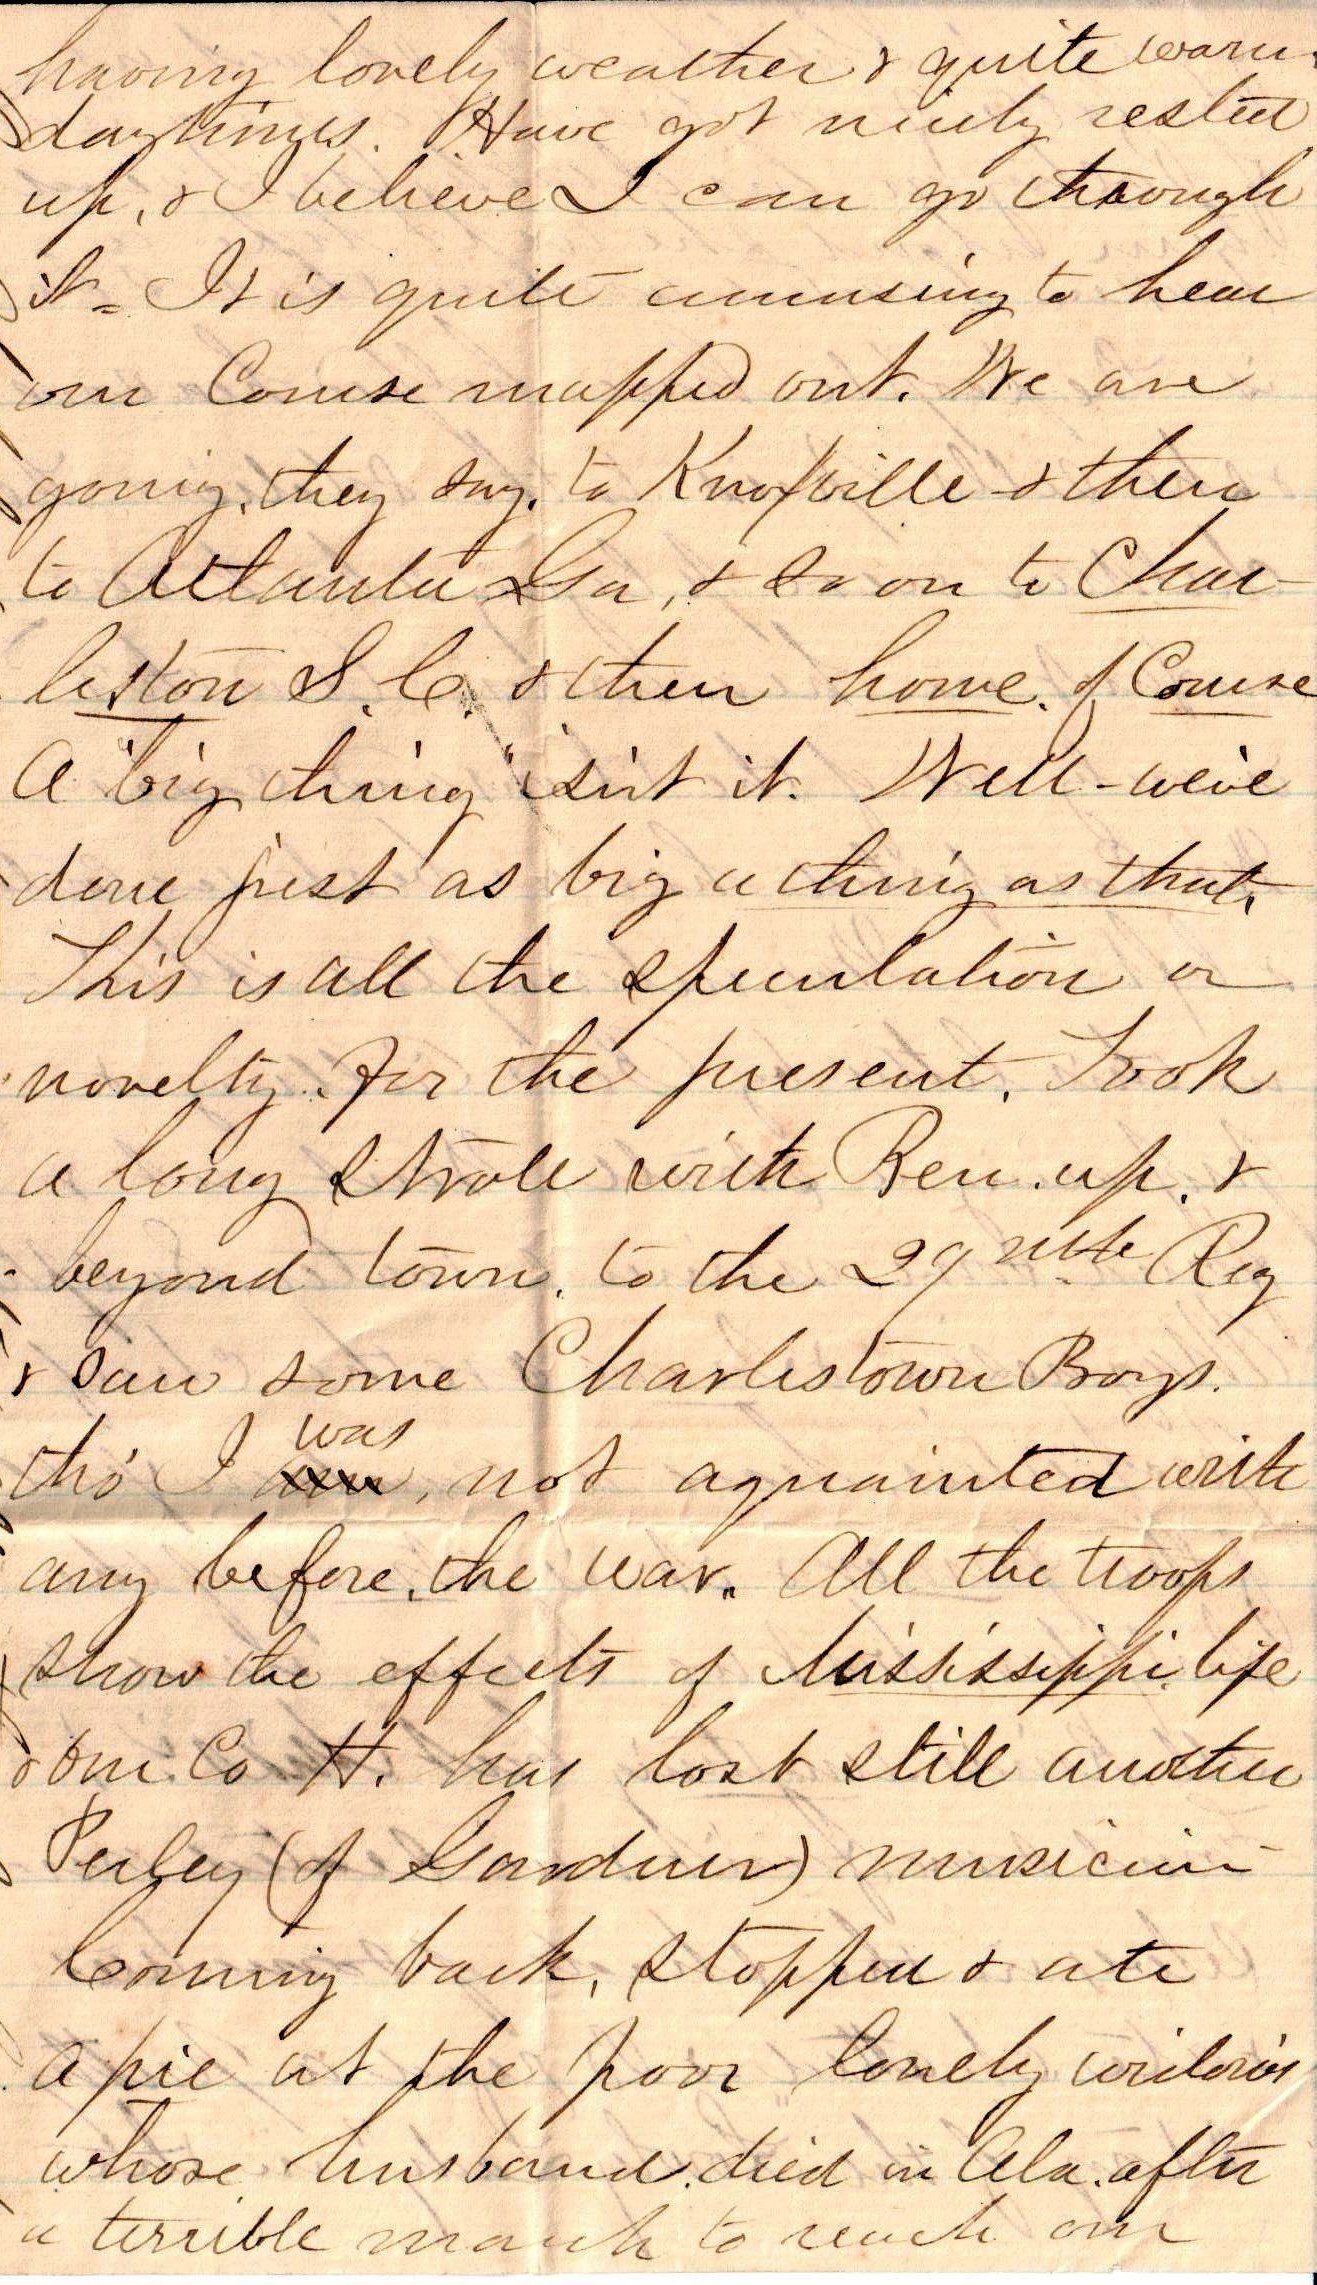 having lovely weather & quite warm
daytimes. Have got nicely rested
up, & I believe I can go through
it = It is quite amusing to hear
our Course mapped out. We are
going, they say, to Knoxville & then
to Atlanta Ga, & so on to Char-
leston S. C. & then home. of Course
A "big thing" isn't it. Well - we've
done just as big a thing as that.
This is all the speculation or
novelty. for the present. Took
a long strole with Ben. up. &
beyond town. to the 29 nth Reg
& saw some Charlestown Boys.
tho' I was am, not aquainted with
any before, the war. All the troops
show the effects of Mississippi life
& our Co H. has lost still another
Perley (of Gardner) musician
Coming back, stopped & ate
a pie at the poor lonely widow's
whose husband. died in Ala. after
a terrible march to reach our